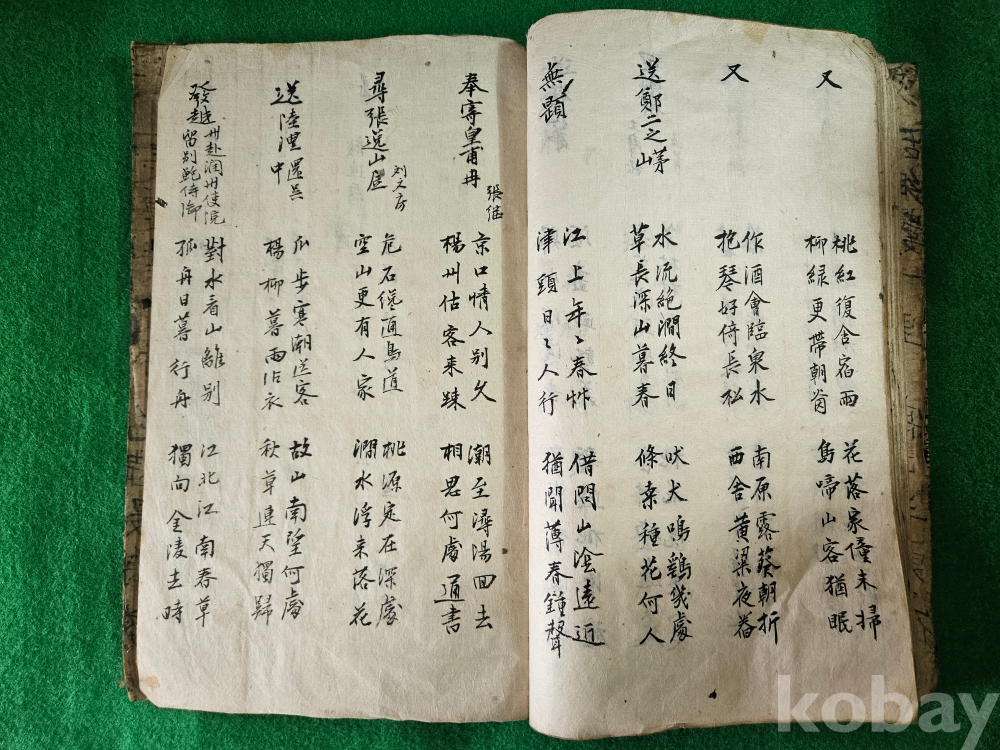 又
桃紅復含宿雨
柳綠更帶朝
花落家僮未掃
鳥啼山客猶眠
又
作酒會臨泉水
抱琴好倚長松
南原露葵朝折
西舍黃粱夜舂
送鄭二之茅山
水流絶澗終日
草長深山暮春
吠犬鳴鷄幾處
條桑種花何人
無題
江上年〻春
津頭日〻人行
借問山陰遠近
猶聞薄春鐘聲
奉寄皇甫冉
張继
京口情人別久
楊州估客来踈
潮至潯陽回去
相思何處通書
尋張逸山居
刘文房
危石僥通鳥道
空山更有人家
桃源定在深處
澗水浮来落花
送陸澧還吴中
瓜步寒潮送客
楊柳暮雨沾衣
故山南望何處
秋草連天獨歸
發越州赴润州使院
留別鮑侍御
對水看山離别
孤舟日暮行舟
江北江南春草
獨向金陵去時
kobay